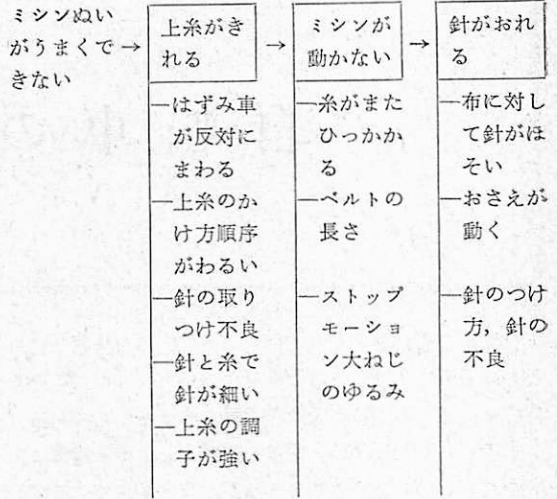 ミシンぬい
がうまくで→
きない
上糸がき
れる
→
ミシンが
動かない
→
針がおれ
る
—はずみ車
が反対に
まわる
—上糸のか
け方順序
がわるい
—針の取り
つけ不良
—針と糸で
針が細い
—上糸の調
子が強い
—糸がまた
ひっかか
る
—ベルトの
長さ
—ストップ
モーショ
ン大ねじ
のゆるみ
—布に対し
て針がほ
そい
—おさえが
動く
—針のつけ
方，針の
不良